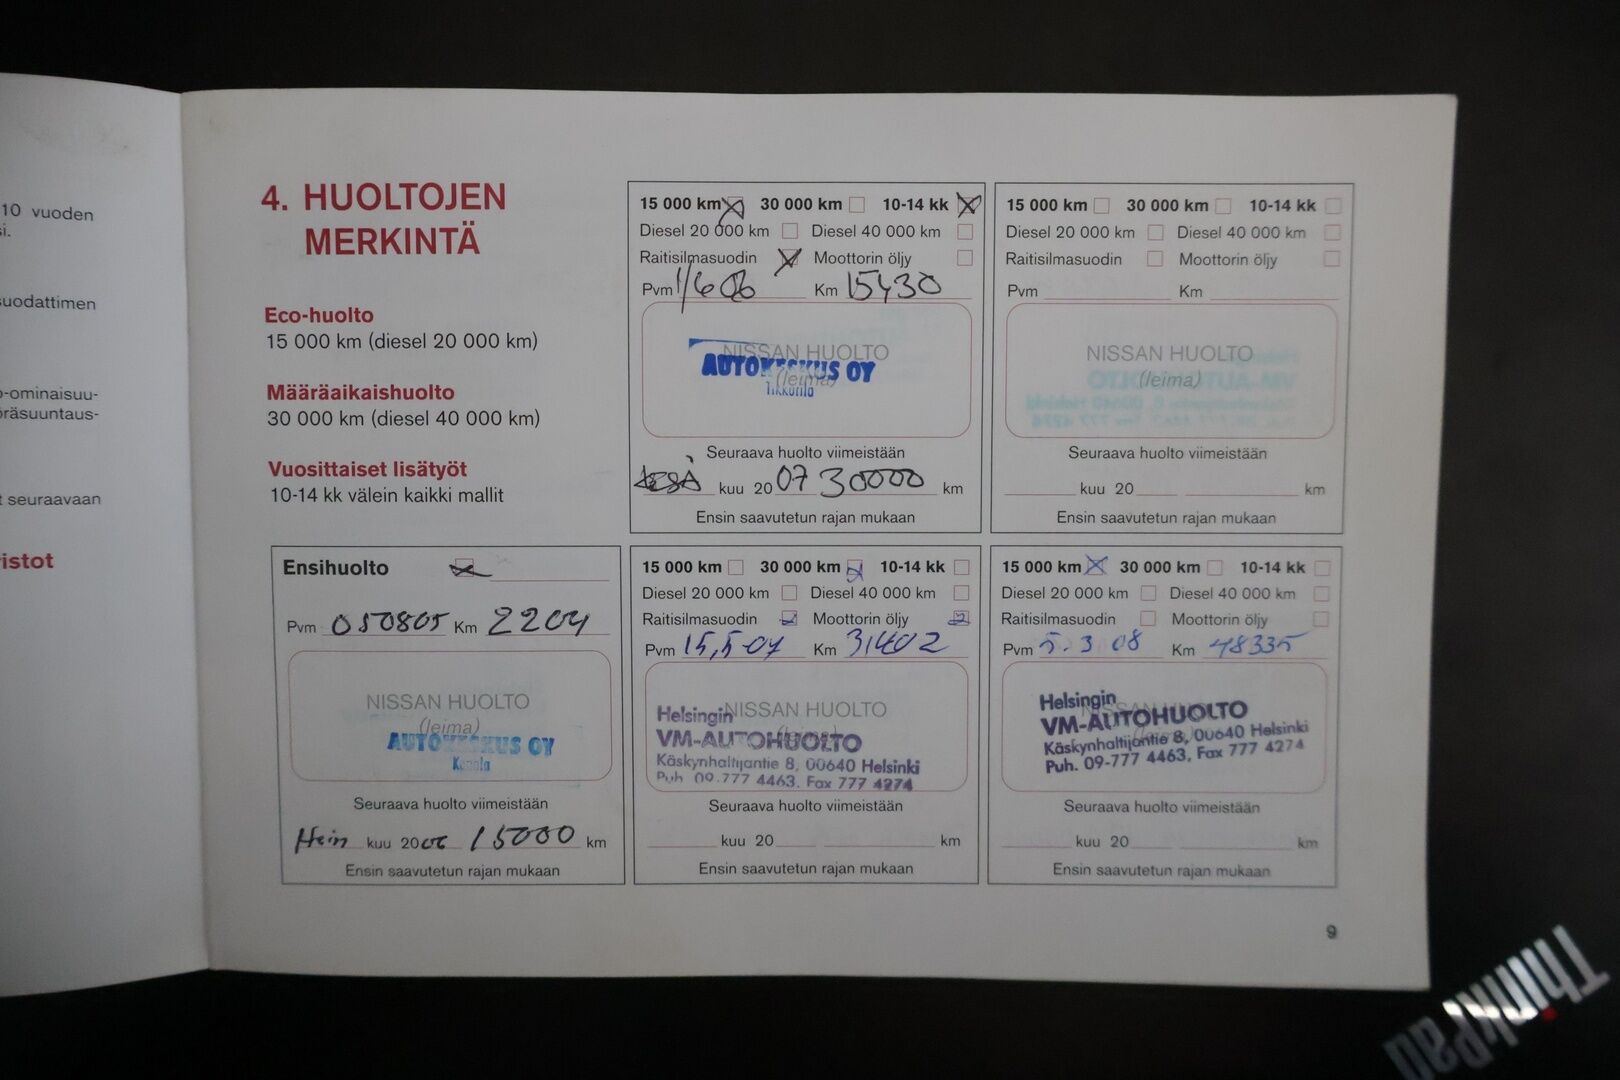 10 vuoden
si.
suodattimen
o-ominaisuu-
öräsuuntaus-
t seuraavaan
istot
4. HUOLTOJEN
MERKINTÄ
Eco-huolto
15 000 km (diesel 20 000 km)
Määräaikaishuolto
30 000 km (diesel 40 000 km)
Vuosittaiset lisätyöt
10-14 kk välein kaikki mallit
15 000 km 30 000 km 10-14 kk
Diesel 20 000 km Diesel 40 000 km
Raitisilmasuodin Moottorin öljy
Pvm 1/6 06 Km 15430
NISSAN HUOLTO
(leima)
AUTOKESKUS OY
Tikkurila
Seuraava huolto viimeistään
kesä kuu 2007 30000 km
Ensin saavutetun rajan mukaan
15 000 km 30 000 km 10-14 kk
Diesel 20 000 km Diesel 40 000 km
Raitisilmasuodin Moottorin öljy
Pvm Km
NISSAN HUOLTO
(leima)
Seuraava huolto viimeistään
kuu 20 km
Ensin saavutetun rajan mukaan
Ensihuolto
Pvm 050805 Km 2204
NISSAN HUOLTO
(leima)
AUTOKESKUS OY
Seuraava huolto viimeistään
Hein kuu 2006 15000 km
Ensin saavutetun rajan mukaan
15 000 km 30 000 km 10-14 kk
Diesel 20 000 km Diesel 40 000 km
Raitisilmasuodin Moottorin öljy
Pvm 15,5-07 Km 31402
NISSAN HUOLTO
(leima)
Helsingin
VM-AUTOHUOLTO
Käskynhaltijantie 8, 00640 Helsinki
Puh. 09-777 4463, Fax 777 4274
Seuraava huolto viimeistään
kuu 20 km
Ensin saavutetun rajan mukaan
15 000 km 30 000 km 10-14 kk
Diesel 20 000 km Diesel 40 000 km
Raitisilmasuodin Moottorin öljy
Pvm 5.3 08 Km 48335
Helsingin
VM-AUTOHUOLTO
Käskynhaltijantie 8, 00640 Helsinki
Puh. 09-777 4463, Fax 777 4274
Seuraava huolto viimeistään
kuu 20 km
Ensin saavutetun rajan mukaan
9
ThinkPad